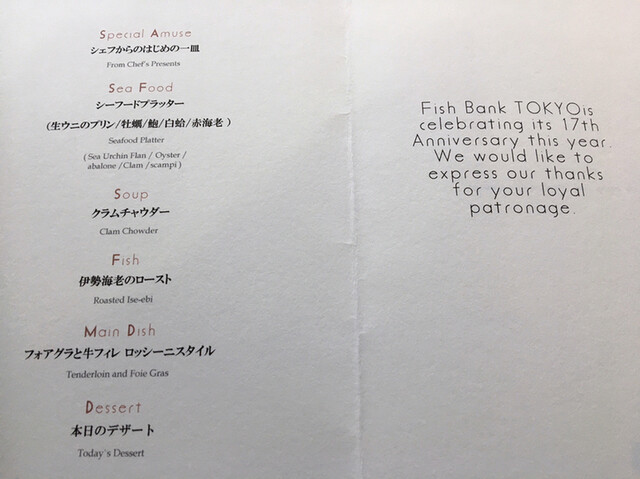 Special Amuse
シェフからのはじめの一皿
From Chef's Presents
Sea Food
シーフードプラッター
（生ウニのプリン/牡蠣/鮑/白蛤/赤海老 ）
Seafood Platter
( Sea Urchin Flan / Oyster /
abalone /Clam /scampi )
Soup
クラムチャウダー
Clam Chowder
Fish
伊勢海老のロースト
Roasted Ise-ebi
Main Dish
フォアグラと牛フィレ ロッシーニスタイル
Tenderloin and Foie Gras
Dessert
本日のデザート
Today`s Dessert
Fish Bank TOKYOis
celebrating its 17th
Anniversary this year.
We would like to
express our thanks
for your loyal
patronage.